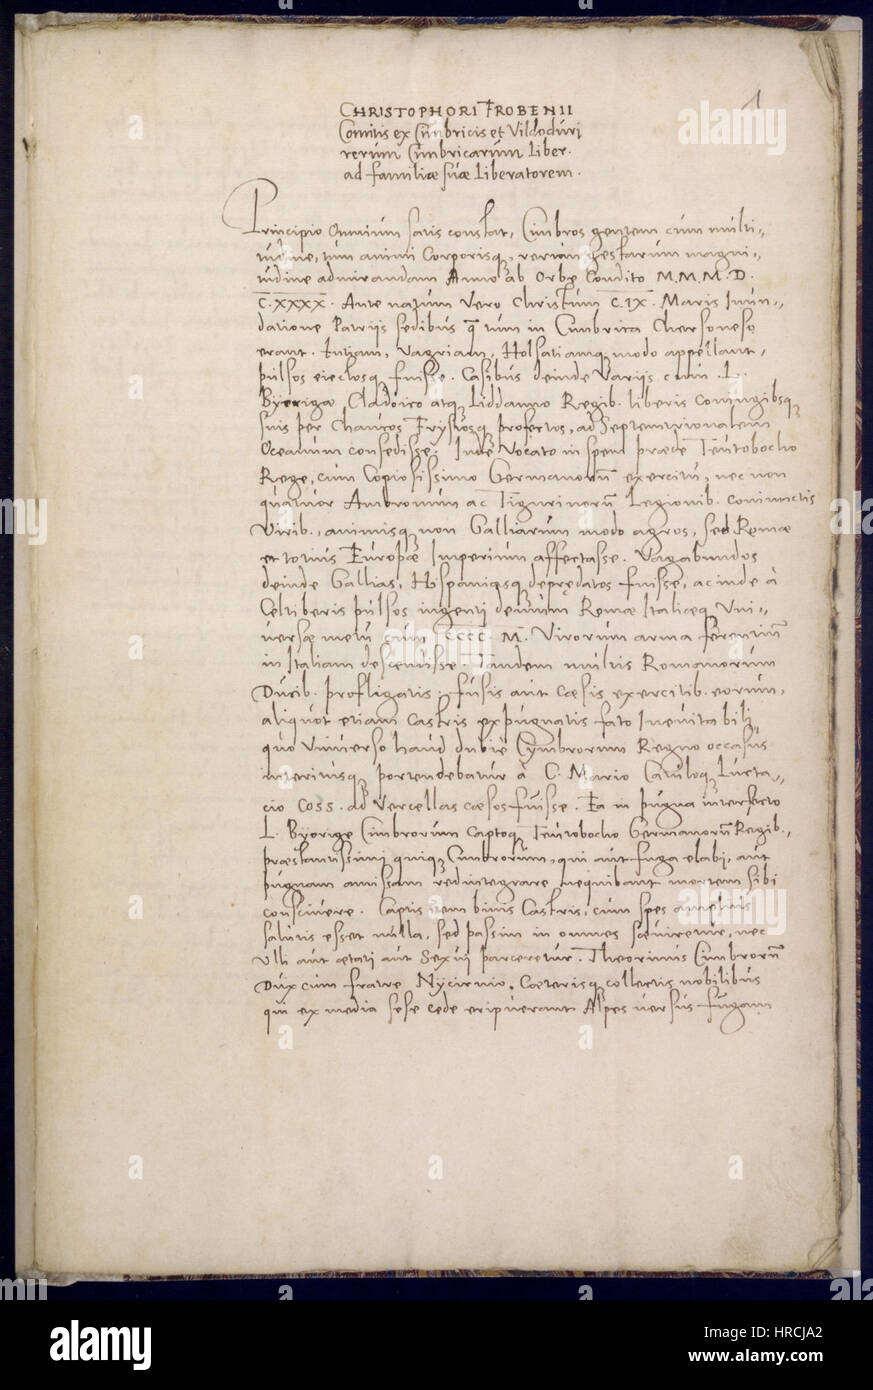 1
CHRISTOPHORI FROBENII
Comitis ex Cimbricis et Vildoduri
rerum Cimbricarum Liber.
ad familiæ suæ Liberatorem.
Principio Omnium satis constat, Cimbros gentem cum multi=
tudine, tum animi Corporisq, rerum gestarum magni=
tudine admirandam Anno ab Orbe Condito M.M.M.D.
C.XXXX. Ante natum Vero Christum C.IX. Maris Inun=
datione Patrijs sedibus quæ tum in Cimbrica Chersoneso
erant. Iutiam, Vagriam, Holsatiamq modo appellant,
pulsos eiectosq fuisse. Casibus deinde Varijs cum .L.
Byeriga Clodoico atq Liddanno Regib. liberis coniugibsq
suis per Chaucos Frysiosq profectos, ad Septemtrionalem
Oceanum consedisse. Inde Vocato in spem prædæ Teutobocho
Rege, cum Copiosissimo Germanorū exercitu, nec non
quatuor Ambronum ac Tigurinorū Legionib. coniunctis
Virib., animisq non Galliarum modo agros, sed Romæ
et totius Europæ Imperium affectasse. Vagabundos
deinde Gallias, Hispaniasq deprędatos fuisse, ac inde à
Celtiberis pulsos ingenti demum Romæ Italiæq Vni=
versæ metu cum CCCC. M. Virorum arma ferentiū
in Italiam descendisse. Tandem multis Romanorum
Ducib. profligatis, fusis aut cæsis exercitib. eorum,
aliquot etiam Castris expugnatis fato Ineuitabili,
quo Vniuerso haud dubiè Cymbrorum Regno occasus
interitusq portendebatur à C. Mario Catuloq Lucta=
cio Coss. ad Vercellas cæsos fuisse. Ea in pugna interfecto
L. Byorige Cimbrorum Captoq Teutobocho Germanorū Regib.,
præstantissimi quiq Cimbrorum, qui aut fuga elabi, aut
pugnam amissam redintegrare nequibant mortem sibi
consciuere. Captis item binis Castris, cum spes amplius
salutis esset nulla, sed passim in omnes sæuiretur, nec
Vlli aut ætati aut Sexui parceretur. Theorimus Cimbrorū
Dux cum fratre Nycirnio, Cæterisq collectis nobilibus
qui ex media sese cæde eripuerant Alpes versus fugam
alamy
Image ID: HRCJA2
www.alamy.com